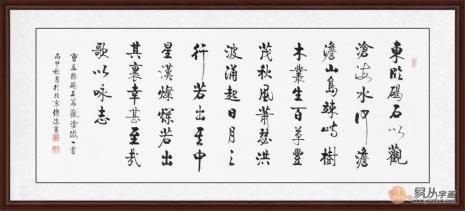 東臨碣石以觀
滄海水何澹
澹山島竦峙樹
木叢生百草豐
茂秋風蕭瑟洪
波涌起日月之
行若出其中
星漢燦爛若出
其裏幸甚至哉
歌以咏志
曹孟德碣石篇觀滄海一首
易从字画